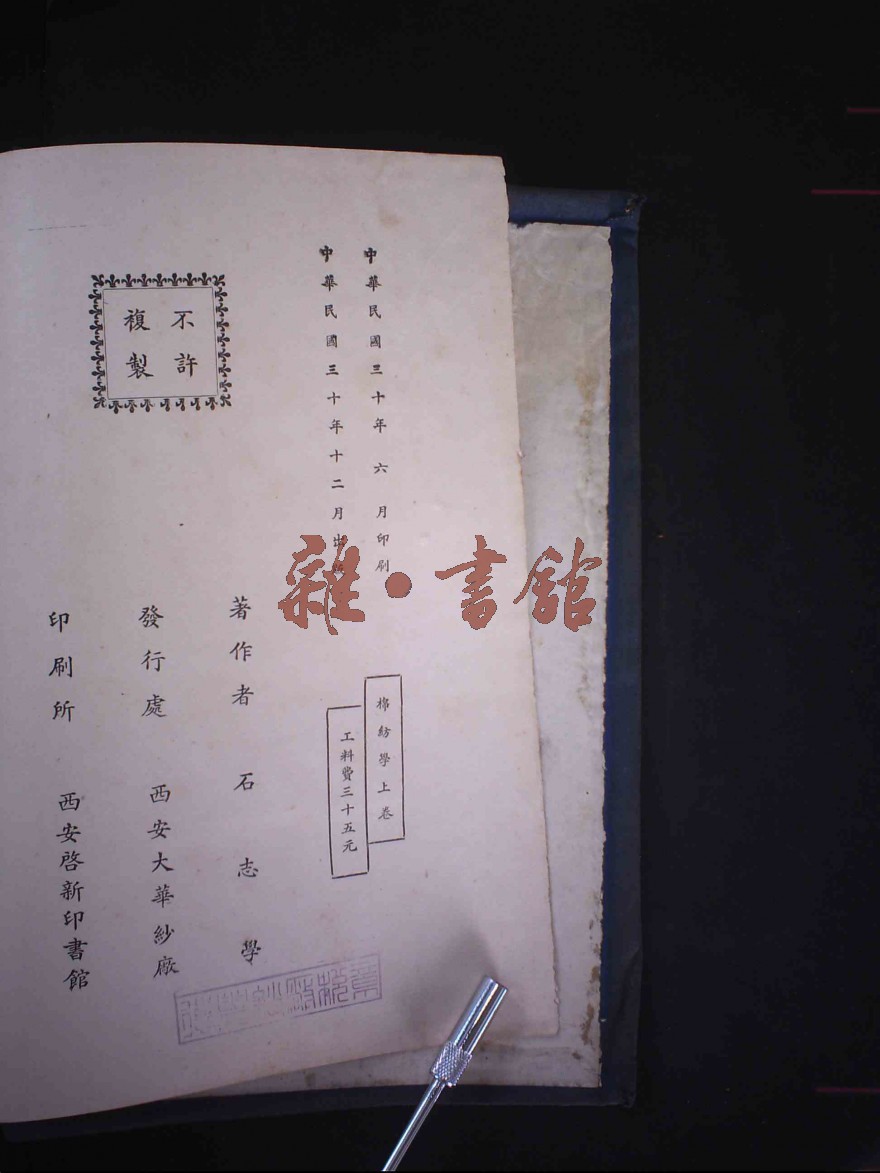 中華民國三十年六月印刷
中華民國三十年十二月出版
棉紡學上卷
工料費三十五元
著作者 石志學
發行處 西安大華紗廠
印刷所 西安啓新印書館
不許
複製
雜·書館